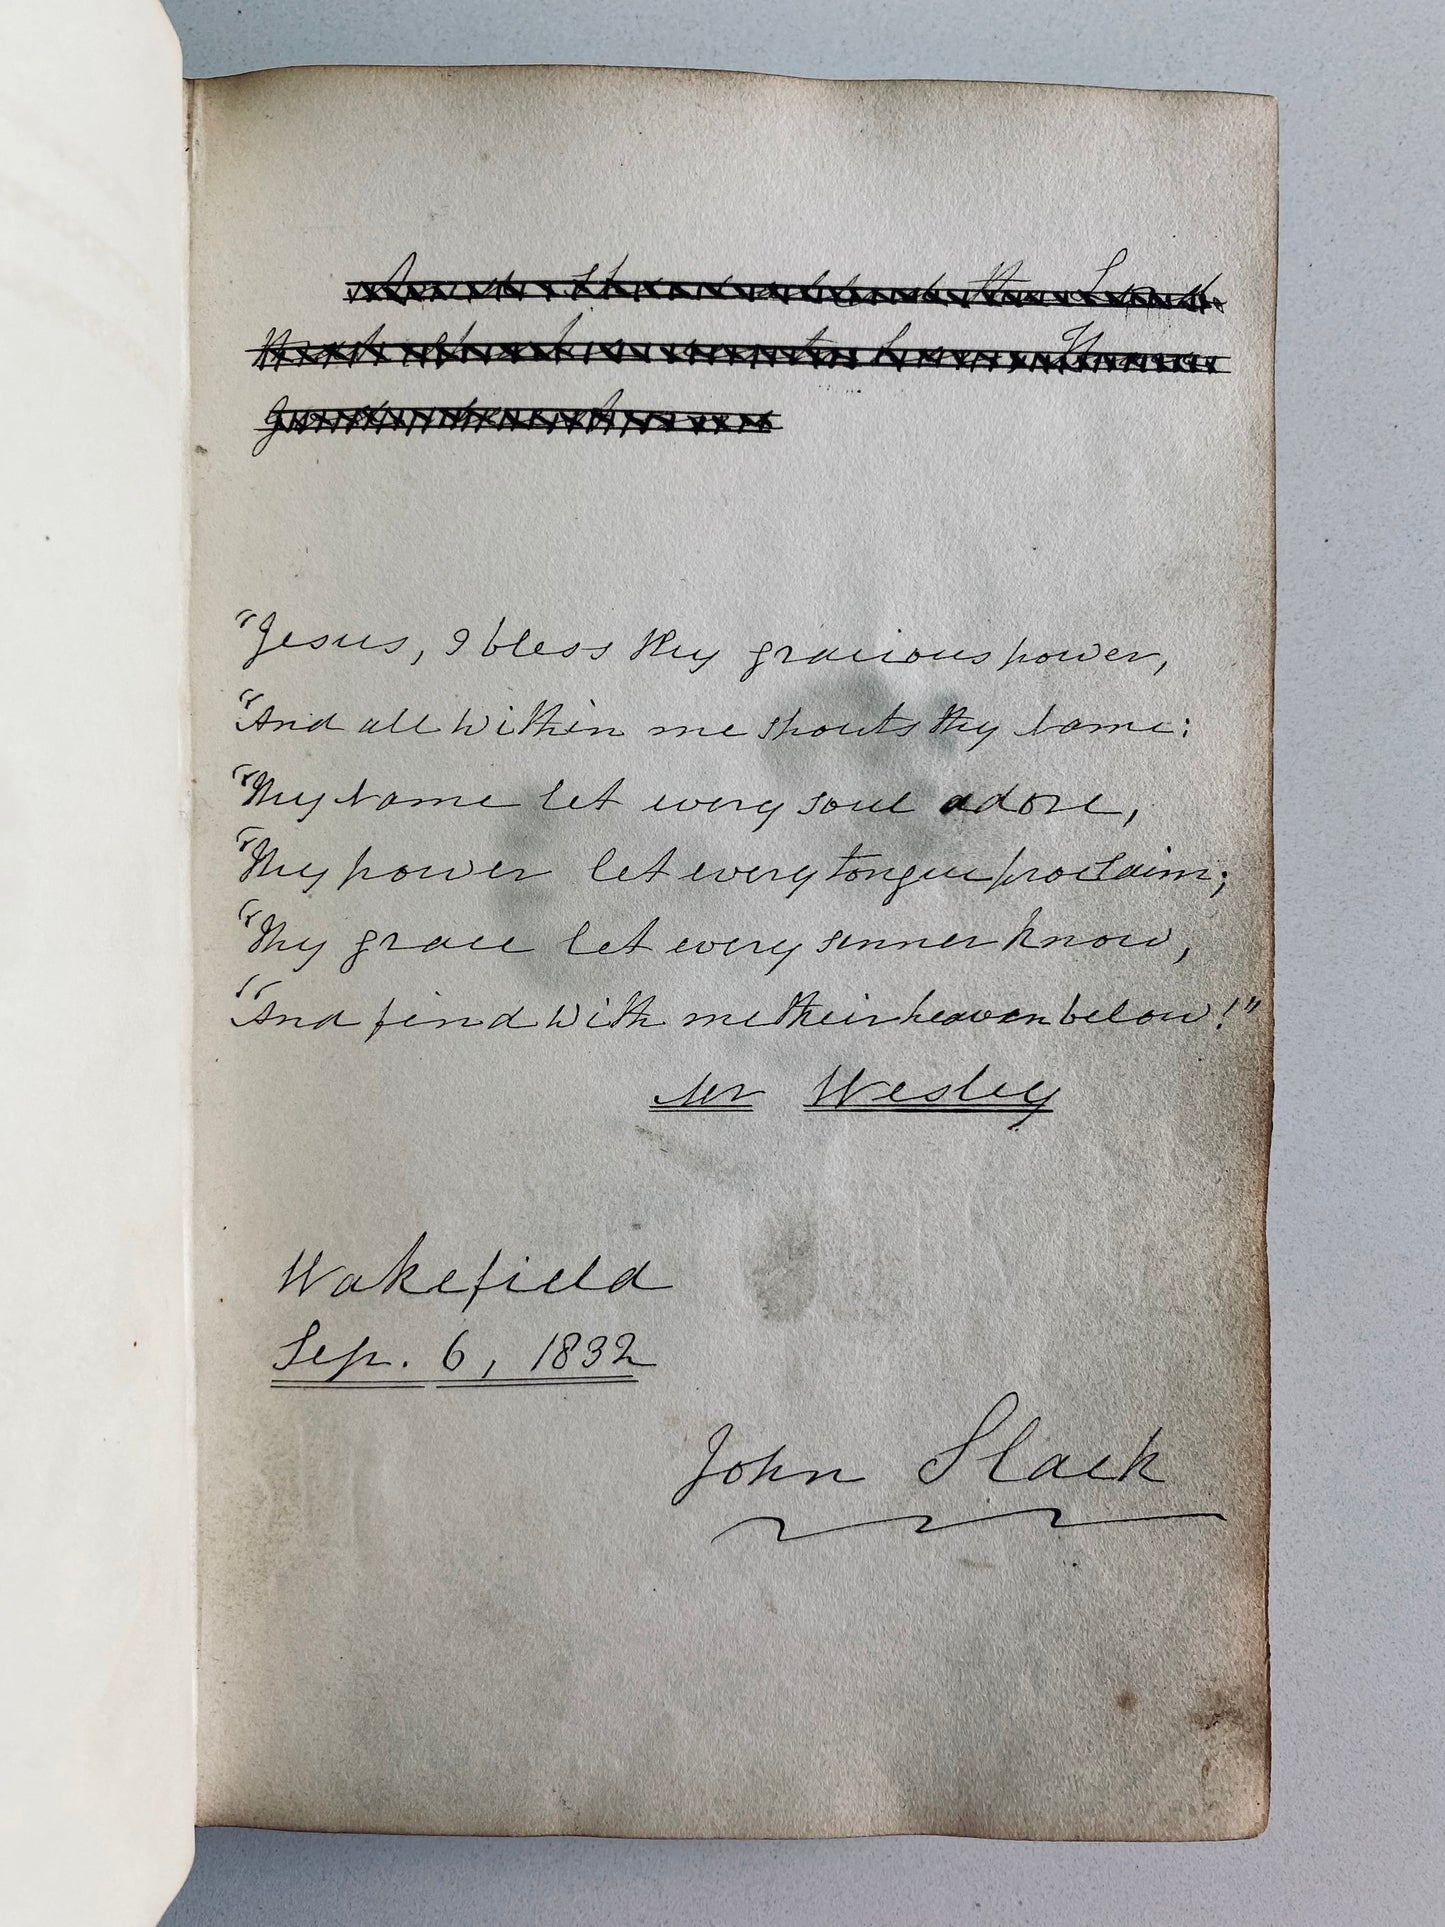 "Jesus, I bless thy gracious power,
"And all within me shouts thy name:
"Thy Name let every soul adore,
"Thy power let every tongue proclaim;
"Thy grace let every sinner know,
"And find with me their heaven below!"
Mr Wesley
Wakefield
Sep. 6, 1832
John Slack